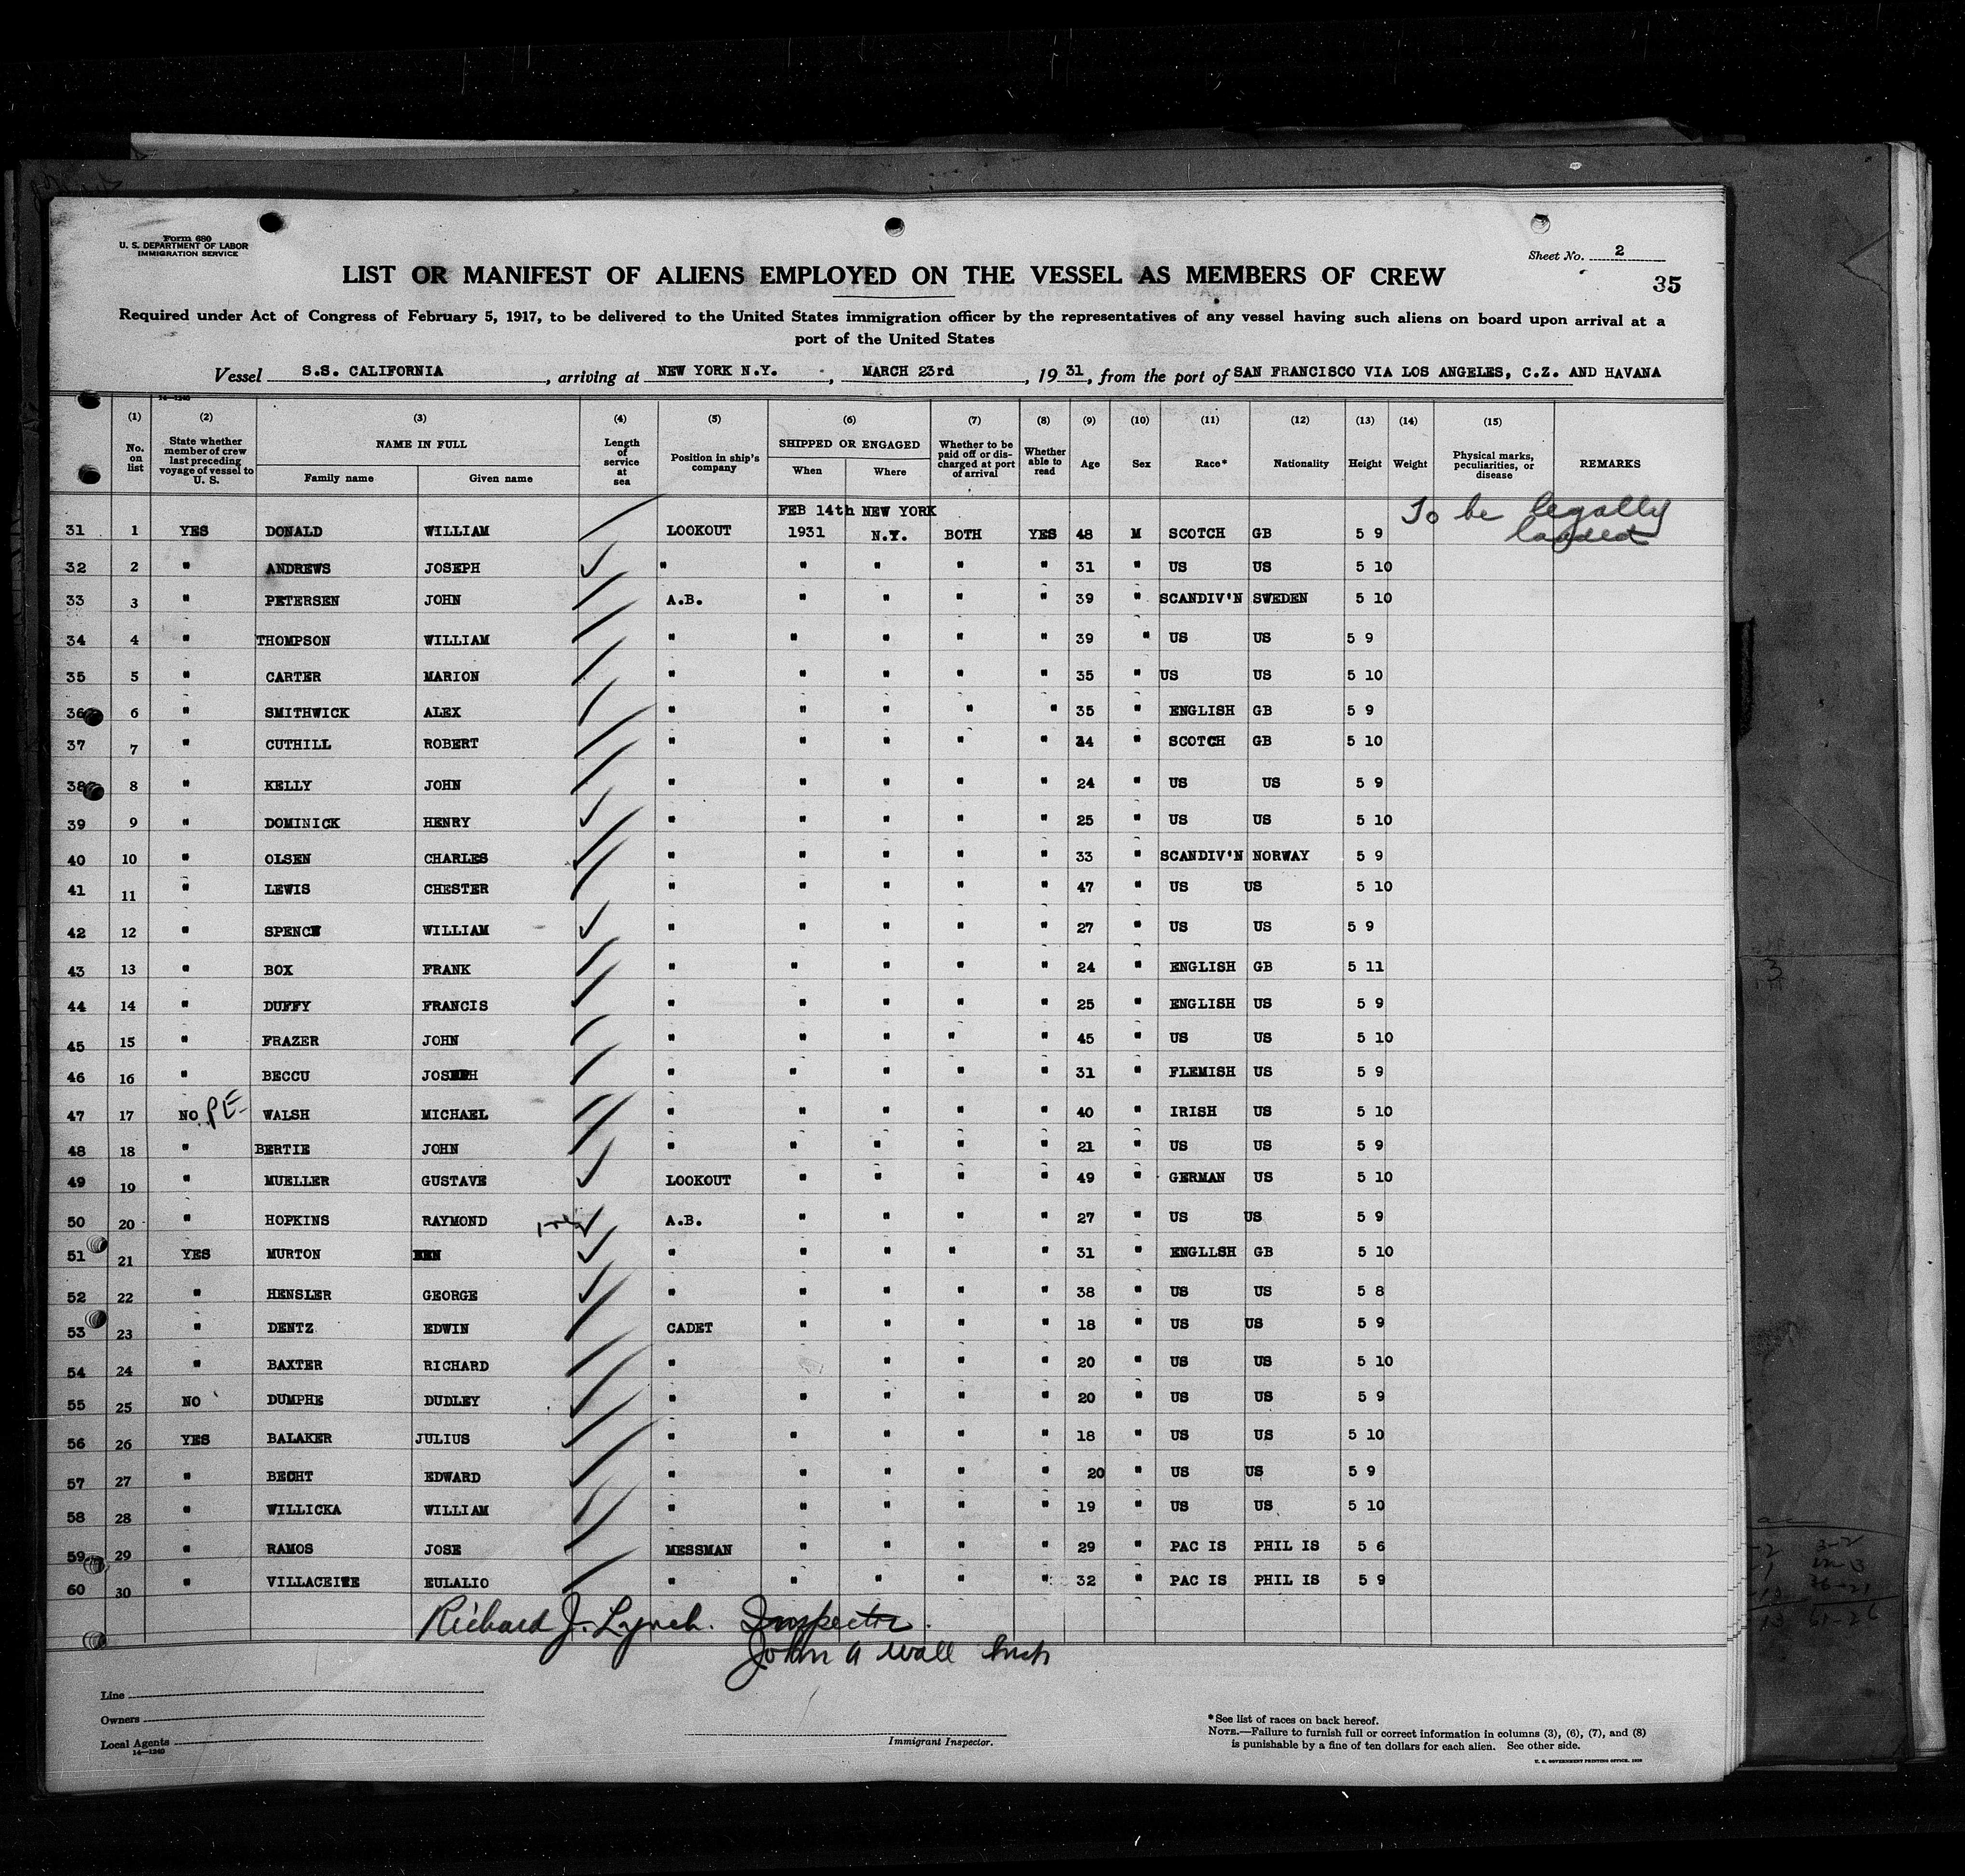 Form 680
U. S. DEPARTMENT OF LABOR
IMMIGRATION SERVICE
Sheet No. 2
35
LIST OR MANIFEST OF ALIENS EMPLOYED ON THE VESSEL AS MEMBERS OF CREW
Required under Act of Congress of February 5, 1917, to be delivered to the United States immigration officer by the representatives of any vessel having such aliens on board upon arrival at a
port of the United States
Vessel S.S. CALIFORNIA, arriving at NEW YORK N.Y., MARCH 23rd, 1931, from the port of SAN FRANCISCO VIA LOS ANGELES, C.Z. AND HAVANA
14-1240
(1) (2) (3) (4) (5) (6) (7) (8) (9) (10) (11) (12) (13) (14) (15)
No. on list
State whether member of crew last preceding voyage of vessel to U. S.
NAME IN FULL
Family name Given name
Length of service at sea
Position in ship's company
SHIPPED OR ENGAGED
When Where
Whether to be paid off or discharged at port of arrival
Whether able to read
Age Sex Race* Nationality Height Weight
Physical marks, peculiarities, or disease
REMARKS
FEB 14th NEW YORK To be legally
31 1 YES DONALD WILLIAM LOOKOUT 1931 N.Y. BOTH YES 48 M SCOTCH GB 5 9 landed
32 2 " ANDREWS JOSEPH " " " " " 31 " US US 5 10
33 3 " PETERSEN JOHN A.B. " " " " 39 " SCANDIV'N SWEDEN 5 10
34 4 " THOMPSON WILLIAM " " " " " 39 " US US 5 9
35 5 " CARTER MARION " " " " " 35 " US US 5 10
36 6 " SMITHWICK ALEX " " " " " 35 " ENGLISH GB 5 9
37 7 " CUTHILL ROBERT " " " " " " SCOTCH GB 5 10
38 8 " KELLY JOHN " " " " " 24 " US US 5 9
39 9 " DOMINICK HENRY " " " " " 25 " US US 5 10
40 10 " OLSEN CHARLES " " " " " 33 " SCANDIV'N NORWAY 5 9
41 11 " LEWIS CHESTER " " " " " 47 " US US 5 10
42 12 " WILLIAM " " " " " 27 " US US 5 9
43 13 " BOX FRANK " " " " " 24 " ENGLISH GB 5 11
44 14 " DUFFY FRANCIS " " " " " 25 " ENGLISH US 5 9
45 15 " FRAZER JOHN " " " " " 45 " US US 5 10
46 16 " BECCU JOSEPH " " " " " 31 " FLEMISH US 5 9
47 17 NO PE WALSH MICHAEL " " " " " 40 " IRISH US 5 10
48 18 " BERTIE JOHN " " " " " 21 " US US 5 9
49 19 " MUELLER GUSTAVE LOOKOUT " " " " 49 " GERMAN US 5 10
50 20 " HOPKINS RAYMOND A.B. " " " " 27 " US US 5 9
51 21 YES MURTON " " " " " 31 " ENGLLSH GB 5 10
52 22 " HENSLER GEORGE " " " " " 38 " US US 5 8
53 23 " DENTZ EDWIN CADET " " " " 18 " US US 5 9
54 24 " BAXTER RICHARD " " " " 20 " US US 5 10
55 25 NO DUMPHE DUDLEY " " " " " 20 " US US 5 9
56 26 YES BALAKER JULIUS " " " " " 18 " US US 5 10
57 27 " BECHT EDWARD " " " " " 20 " US US 5 9
58 28 " WILLICKA WILLIAM " " " " " 19 " US US 5 10
59 29 " RAMOS JOSE MESSMAN " " " " 29 " PAC IS PHIL IS 5 6
60 30 " EULALIO " " " " " 32 " PAC IS PHIL IS 5 9
Richard J. Lynch. Inspector.
John A Wall
Line
Owners
Local Agents
14-1240
Immigrant Inspector.
*See list of races on back hereof.
NOTE.—Failure to furnish full or correct information in columns (3), (6), (7), and (8)
is punishable by a fine of ten dollars for each alien. See other side.